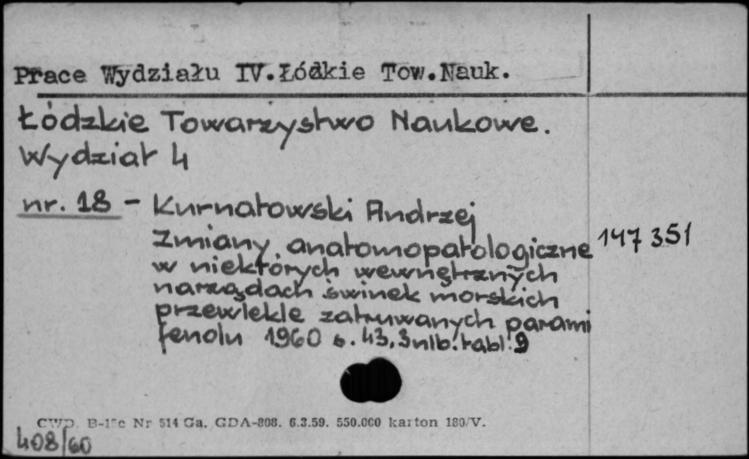 Prace Wydziału IV.Łódkie Tow.Nauk.
Łódzkie Towarzystwo Naukowe.
Wydział 4
nr. 18 - Kurnatowski Andrzej
Zmiany anatomopatologiczne 147 351
w niektórych wewnętrznych
narządach świnek morskich
przewlekle zatruwanych parami
fenolu 1960 s. 43, 3nlb. tabl. 9
CWD. Nr 514 Ga. GDA-808. 6.3.59. 550.000 karton 180/V.
408/60